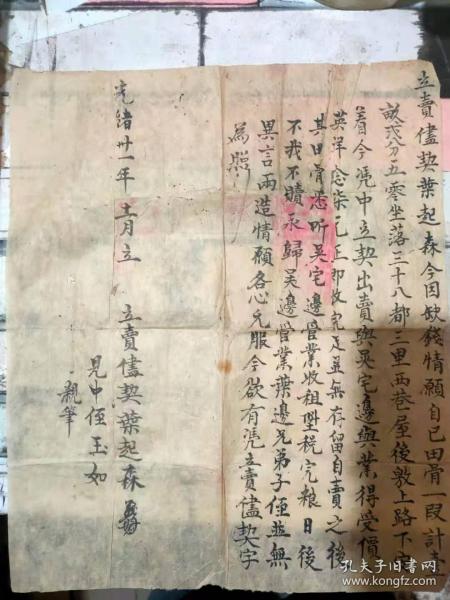 立賣儘契葉起森今因缺錢情願自己田骨一段計
畝弍分五零坐落三十八都三里西巷屋後敦上路下
着今凴中立契出賣與吴宅邊與業得受價
英洋念柒元正即收完足並無存留自賣之後
其田骨悉听吴宅邊管業收租墾税完粮日後
不我不贖永歸吴邊管業葉邊兄弟子侄並無
異言兩造情願各心允服今欲有凴立賣儘契字
為照
光緒卅一年十二月立
立賣儘契葉起森
見中侄玉如
親筆
孔夫子旧书网
book.kongfz.com